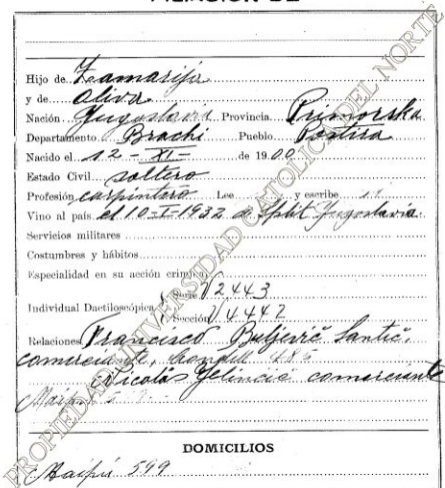 FILIACIÓN DE
Hijo de Zamarija
y de Oliva
Nación Yugoslava Provincia Primorska
Departamento Brachi Pueblo
Nacido el 12-XI- de 1900
Estado Civil soltero
Profesión carpintero Lee y escribe
Vino al país el 10-I-1932 de Split Yugoslavia
Servicios militares
Costumbres y hábitos
Especialidad en su acción criminal
Individual Dactiloscópica Serie V2443
Sección V4442
Relaciones Francisco
comerciante,
Nicolás Yelincic comerciante
Maipú
DOMICILIOS
Maipú 599
PROPIEDAD UNIVERSIDAD CATOLICA DEL NORTE